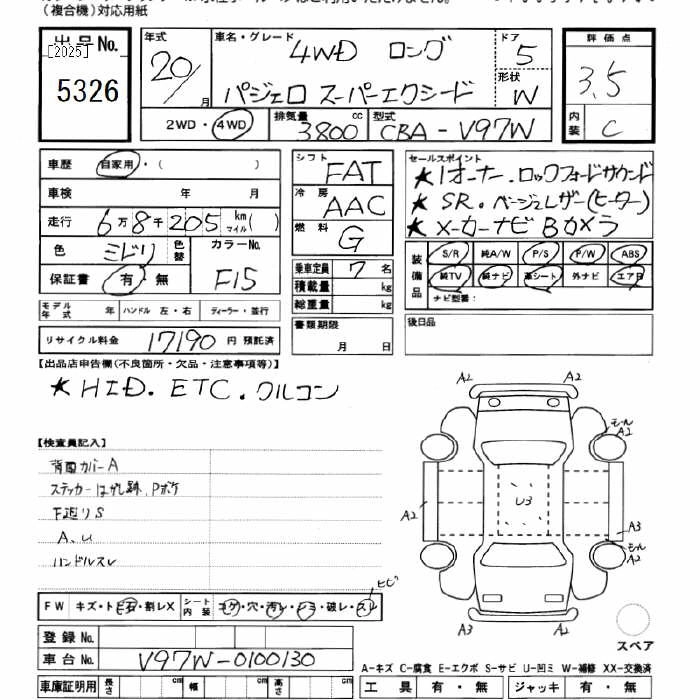 （複合機）対応用紙
出品No.
[2025]
5326
年式
20/
月
車名・グレード
4WD ロング
パジェロ スーパーエクシード
ドア
5
形状
W
2WD・4WD
排気量
3800
cc
型式
CBA-V97W
評価点
3.5
内装
C
車歴
自家用・（ ）
車検 年 月
走行
6万8千205
km
マイル
( )
色
ミドリ
色替
カラーNo.
F15
保証書
有・無
モデル年式 年
ハンドル 左・右
ディーラー・並行
リサイクル料金
17190
円 預託済
シフト
FAT
冷房
AAC
燃料
G
乗車定員 7 名
積載量 kg
総重量 kg
書類期限
月 日
セールスポイント
★1オーナー.ロックフォードサウンド
★SR.ベージュレザー(ヒーター)
★メーカーナビ Bカメラ
装備品
S/R
純A/W
P/S
P/W
ABS
純TV
純ナビ
革シート
外ナビ
エアB
ナビ型番：
後日品
【出品店申告欄(不良箇所・欠品・注意事項等)】
★HID.ETC.クルコン
【検査員記入】
背面カバーA
ステッカーはがし跡,Pボケ
下廻りS
A、U
ハンドルスレ
FW
キズ・トビ石・割レX
シート内装
コゲ・穴・汚レ・シミ・破レ・スレ
ヒビ
登録No.
車台No.
V97W-0100130
車庫証明用
長さ cm
幅 cm
高さ cm
A2
A2
モール
A2
U3
A2
A3
モール
A2
A3
A2
スペア
A-キズ C-腐食 E-エクボ S-サビ U-凹ミ W-補修 XX-交換済
工具 有・無
ジャッキ 有・無